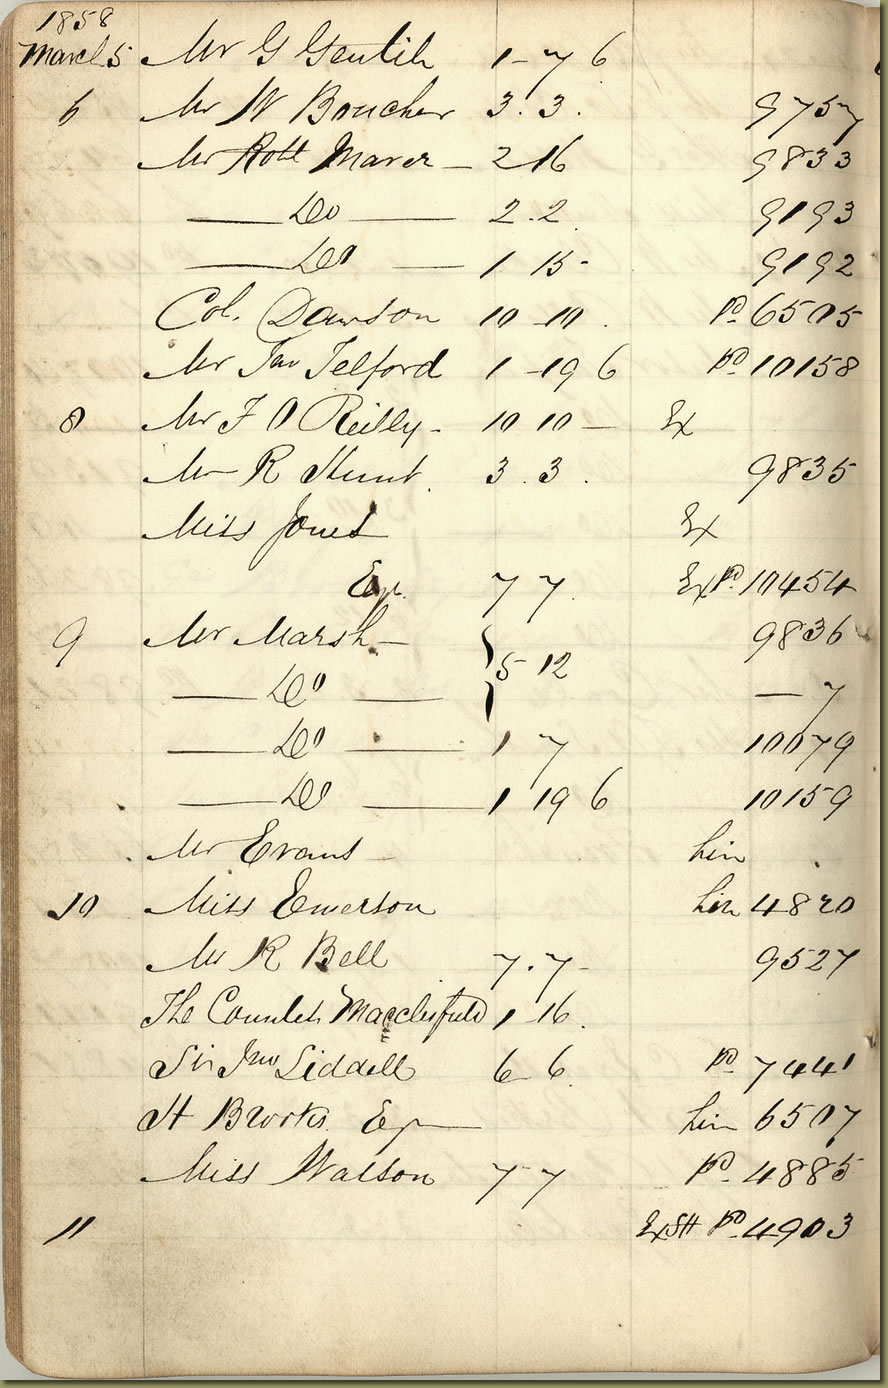 1858
March 5 Mr G Gentih 1-7 6
6 Mr W Boucher 3.3. 9757
Mr Robt Marer 2 16 9833
—— Do —— 2.2. 9193
—— Do —— 1 15- 9192
Col. Dawson 10-10. Pd 6505
Mr Jas Telford 1-19 6 Pd 10158
8 Mr F O Reilly- 10 10— Ex
Mr R Hunt. 3.3. 9835
Miss Jones Ex
Esqr. 7 7. Ex Pd 10454
9 Mr Marsh— 9836
—— Do —— } 5 12 — 7
—— Do —— 1 7 10079
—— Do —— 1 19 6 10159
Mr Evans— Lin
10 Miss Emerson Lin 4820
Mr R Bell 7.7- 9527
The Countess Macclesfield 1-16.
Sir Jno Liddell 6-6. Pd 7441
H Brooks. Esqr Lin 6507
Miss Watson 7 7 Pd 4885
11 Ex SH Pd 4903